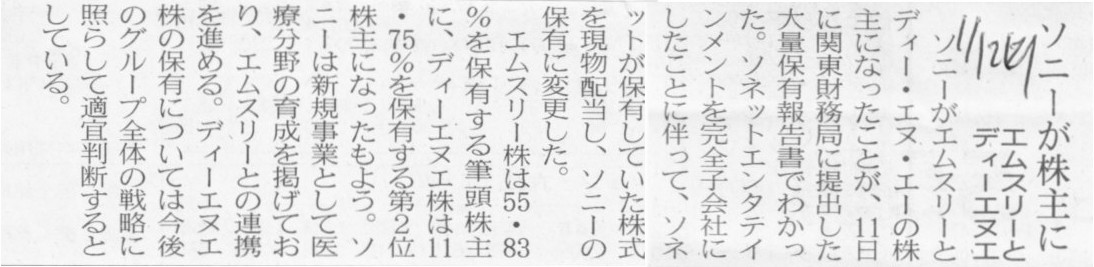 ソニーが株主に
エムスリと
ディーエヌエ
11/12
ソニーがエムスリーと
ディー・エヌ・エーの株
主になったことが、11日
に関東財務局に提出した
大量保有報告書でわかっ
た。ソネットエンタテイ
ンメントを完全子会社に
したことに伴って、ソネ
ットが保有していた株式
を現物配当し、ソニーの
保有に変更した。
エムスリー株は55・83
%を保有する筆頭株主
に、ディーエヌエ株は11
・75%を保有する第2位
株主になったもよう。ソ
ニーは新規事業として医
療分野の育成を掲げてお
り、エムスリーとの連携
を進める。ディーエヌエ
株の保有については今後
のグループ全体の戦略に
照らして適宜判断すると
している。